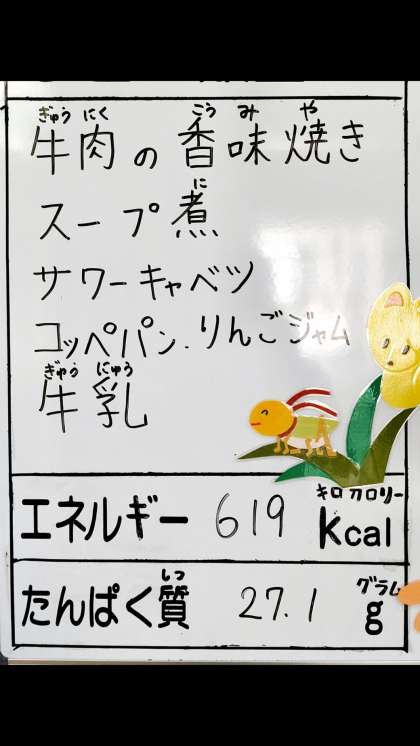 ぎゅう にく こう み や
牛肉の香味焼き
に
スープ煮
サワーキャベツ
コッペパン.りんごジャム
ぎゅう にゅう
牛乳
キロカロリー
エネルギー 619 kcal
しつ グラム
たんぱく質 27.1 g